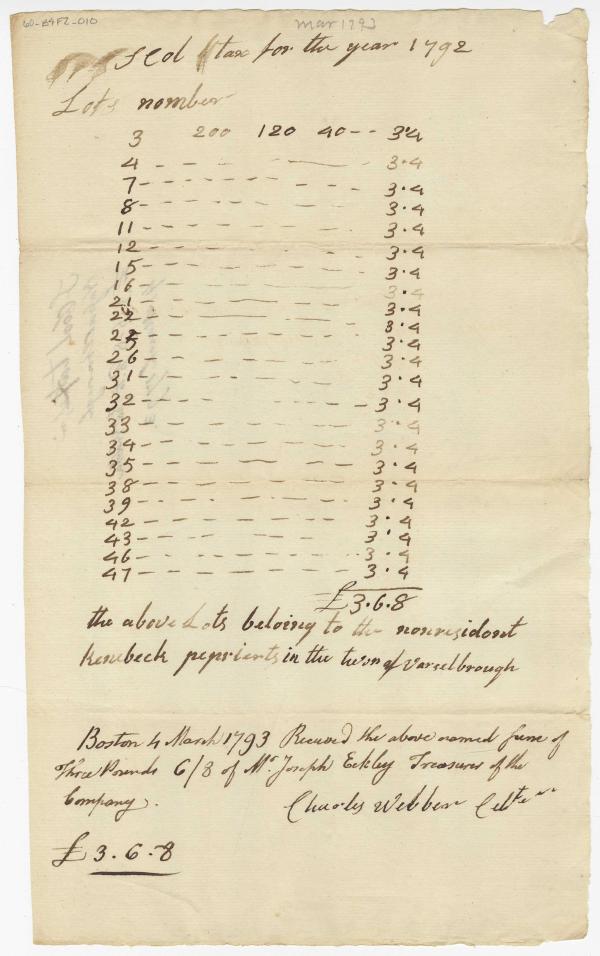 60-B4F2-010
Mar 1793
tax for the year 1792
Lots nomber
3 200 120 40-- 3.4
4 - - - - - - 3.4
7 - - - - - - 3.4
8 - - - - - - 3.4
11 - - - - - - 3.4
12 - - - - - - 3.4
15 - - - - - - 3.4
16 - - - - - - 3.4
21 - - - - - - 3.4
22 - - - - - - 3.4
25 - - - - - - 3.4
26 - - - - - - 3.4
31 - - - - - - 3.4
32 - - - - - - 3.4
33 - - - - - - 3.4
34 - - - - - - 3.4
35 - - - - - - 3.4
38 - - - - - - 3.4
39 - - - - - - 3.4
42 - - - - - - 3.4
43 - - - - - - 3.4
46 - - - - - - 3.4
47 - - - - - - 3.4
£3.6.8
the above Lots beloing to the nonresidont
Kenebeck in the town of Varselbrough
Boston 4 March 1793 Received the above named sum of
Three Pounds 6/8 of Mr. Joseph Eckley Treasurer of the
Company.
Charles Webber
£3.6.8